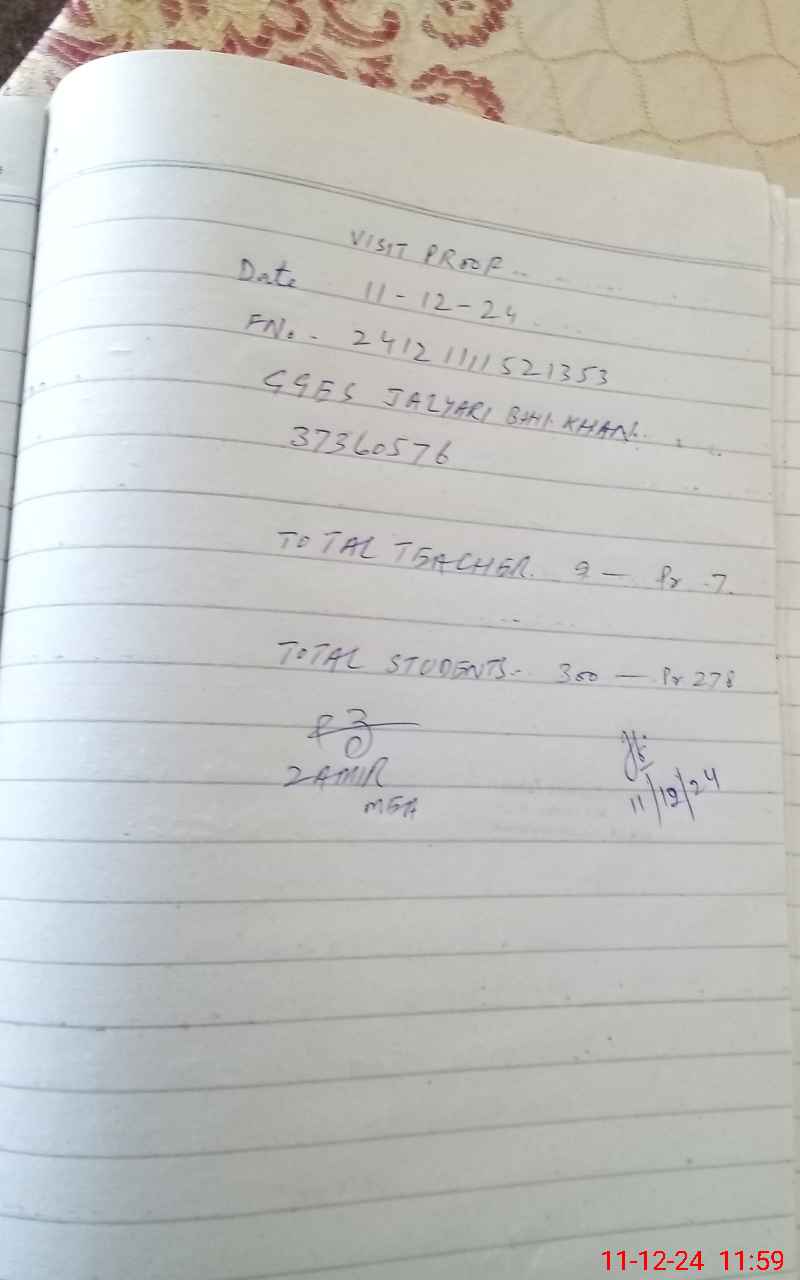 VISIT PROOF ..
Date 11-12-24
FNo. - 24121111521353
GGES JALYARI BHI KHAN.
37360576
TOTAL TEACHER. 9 — Pr 7.
TOTAL STUDENTS - 300 — Pr 278
ZAMIR
MEA
11/12/24
11-12-24 11:59